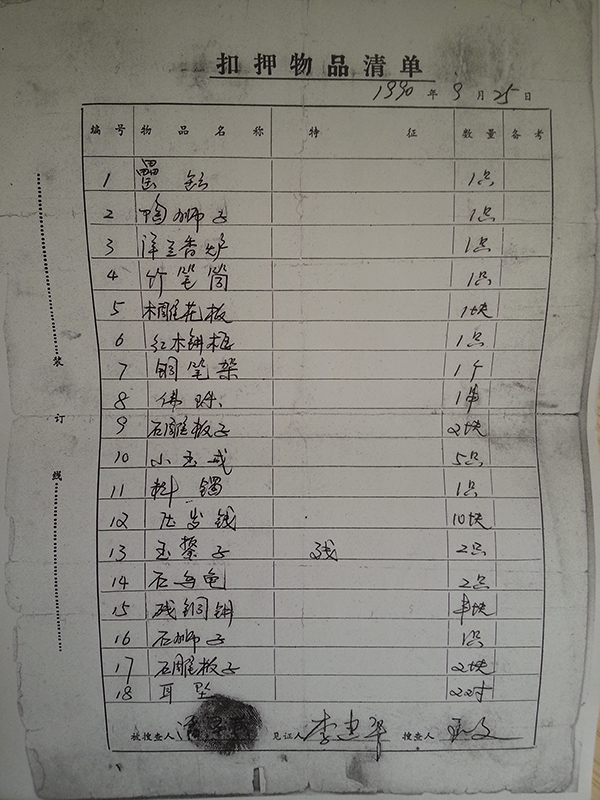 扣押物品清单
1990年9月25日
编号 物品名称 特征 数量 备考
1 1只
2 陶狮子 1只
3 洋兰香炉 1只
4 竹笔筒 1只
5 木雕花板 1块
6 红木镜框 1只
7 铜笔架 1个
8 佛珠 1串
9 石雕板子 2块
10 小玉戒 5只
11 料镯 1只
12 压岁钱 10块
13 玉 子 残 2只
14 石乌龟 2只
15 残铜 块
16 石狮子 1只
17 石雕板子 2块
18 耳坠 22对
被搜查人 潘 见证人 李建华 搜查人
装订线